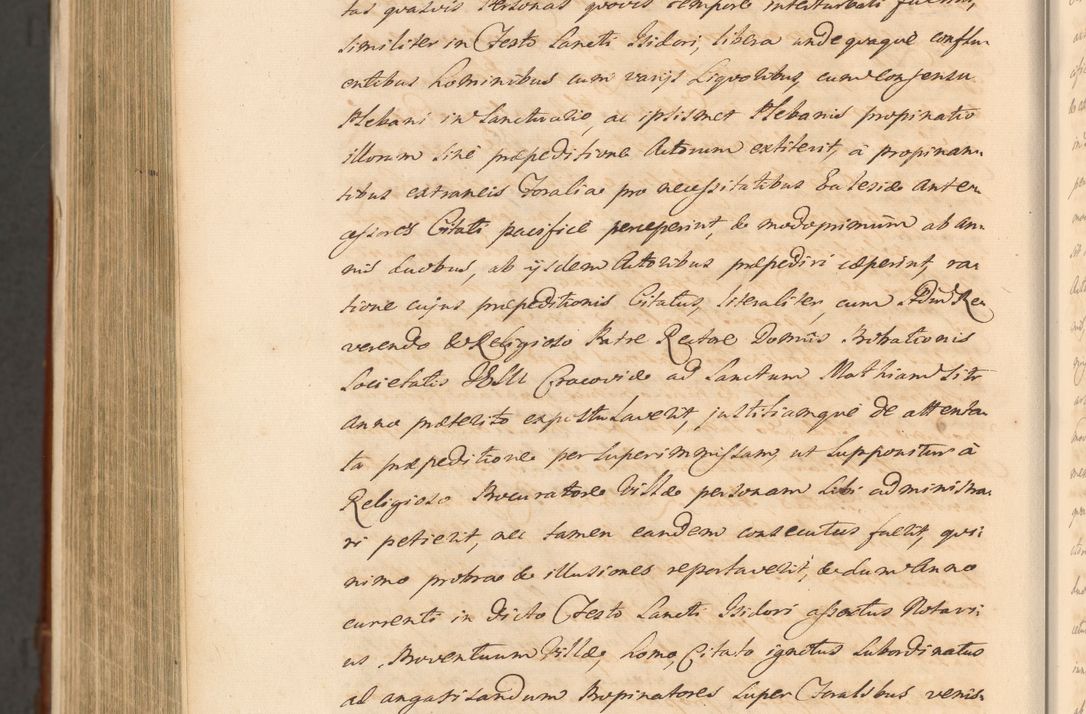 tas quasvis Personas quovis tempore interturbati fuerint,
similiter in Festo Sancti Isidori, libera undequaque conflu-
entibus hominibus cum varijs Liquoribus, cum Consensu
Plebani in Sanctuario, ac ipsismet Plebanis propinatio
illorum sine præpeditione Actorum extiterit, à propinan-
tibus extraneis Foralia pro necessitatibus Ecclesiæ Antec-
essores Citati pacificè perceperint, & modoprimum ab an-
nis duobus, ab ijsdem Actoribus præpediri cæperint, ra-
tione cujus præpeditionis Citatus, literaliter cum Admd Re-
verendo & Religioso Patre Rectore Domus Probationis
Societatis JESU Cracoviæ ad Sanctum Mathiam Sitæ
Anno præterito expostulaverit, justitiamque de attenta-
ta præpeditione per superimmissam, ut supponitur à
Religioso Procuratore Villæ personam sibi administra-
ri petierit, nec tamen eandem consecutus fuerit, qui-
nimo probra & illusiones reportaverit, & dum Anno
currenti in dicto Festo Sancti Isidori assertus Notari-
us Proventuum Villæ, homo, Citato ignotus subordinatus
ad angarisandum Propinatores super Foralibus venis-